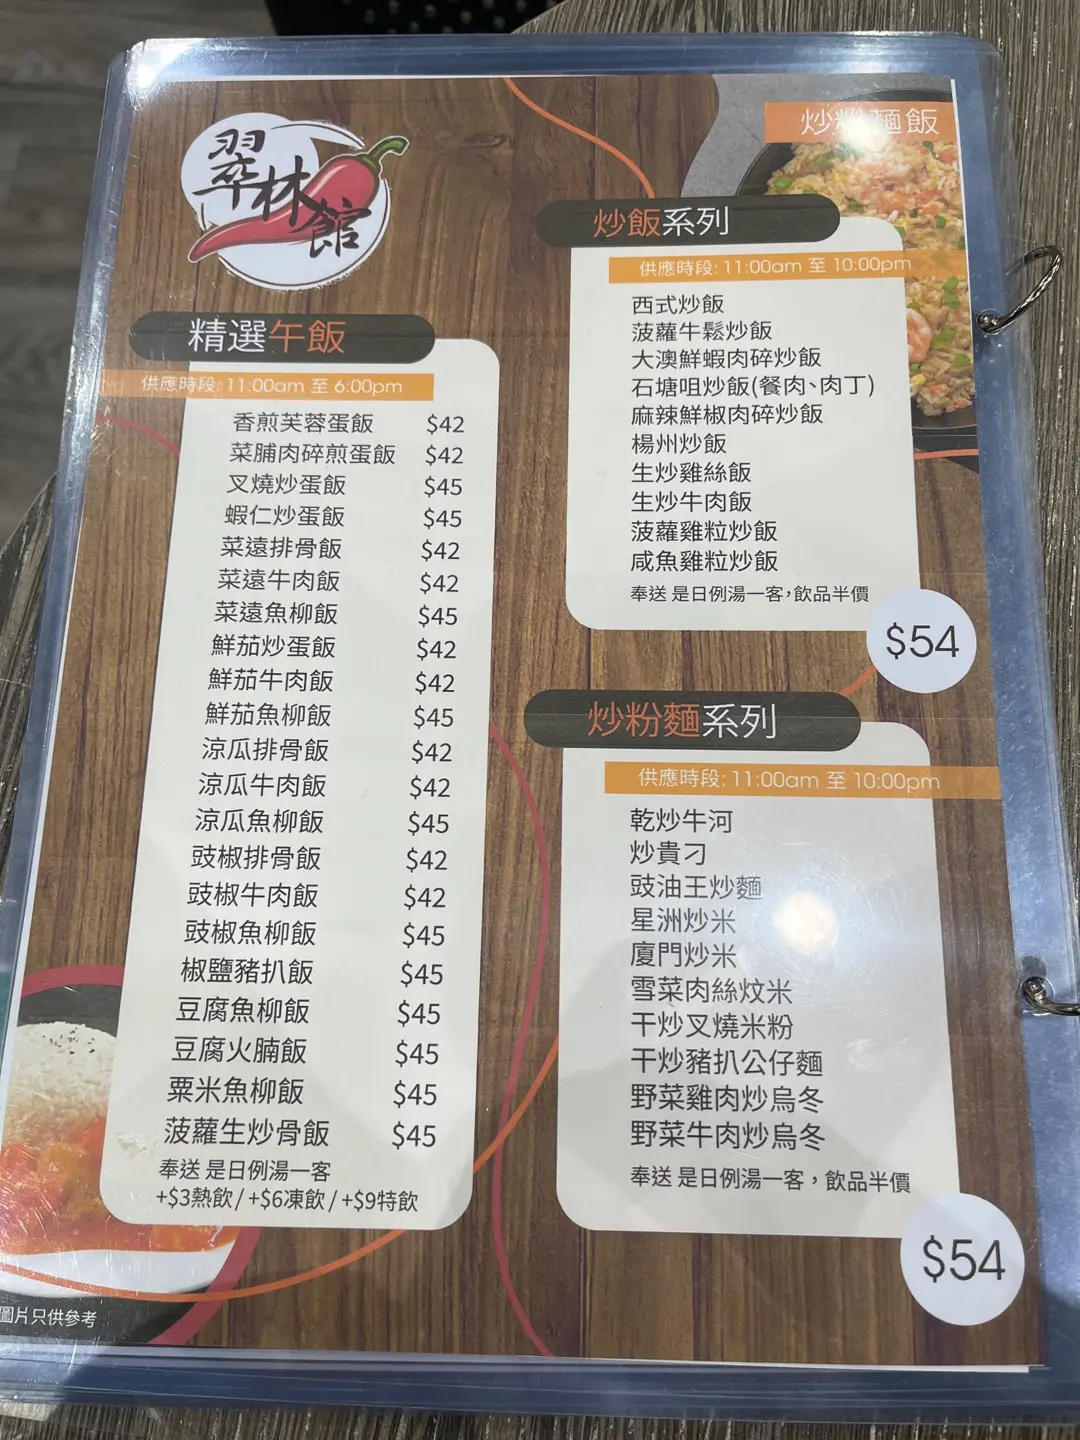 翠林館
精選午飯
供應時段: 11:00am 至 6:00pm
香煎芙蓉蛋飯 $42
菜脯肉碎煎蛋飯 $42
叉燒炒蛋飯 $45
蝦仁炒蛋飯 $45
菜遠排骨飯 $42
菜遠牛肉飯 $42
菜遠魚柳飯 $45
鮮茄炒蛋飯 $42
鮮茄牛肉飯 $42
鮮茄魚柳飯 $45
涼瓜排骨飯 $42
涼瓜牛肉飯 $42
涼瓜魚柳飯 $45
豉椒排骨飯 $42
豉椒牛肉飯 $42
豉椒魚柳飯 $45
椒鹽豬扒飯 $45
豆腐魚柳飯 $45
豆腐火腩飯 $45
粟米魚柳飯 $45
菠蘿生炒骨飯 $45
奉送 是日例湯一客
+$3熱飲 / +$6凍飲 / +$9特飲
圖片只供參考
炒粉麵飯
炒飯系列
供應時段: 11:00am 至 10:00pm
西式炒飯
菠蘿牛鬆炒飯
大澳鮮蝦肉碎炒飯
石塘咀炒飯(餐肉、肉丁)
麻辣鮮椒肉碎炒飯
楊州炒飯
生炒雞絲飯
生炒牛肉飯
菠蘿雞粒炒飯
咸魚雞粒炒飯
奉送 是日例湯一客，飲品半價
$54
炒粉麵系列
供應時段: 11:00am 至 10:00pm
乾炒牛河
炒貴刁
豉油王炒麵
星洲炒米
廈門炒米
雪菜肉絲炆米
干炒叉燒米粉
干炒豬扒公仔麵
野菜雞肉炒烏冬
野菜牛肉炒烏冬
奉送 是日例湯一客，飲品半價
$54